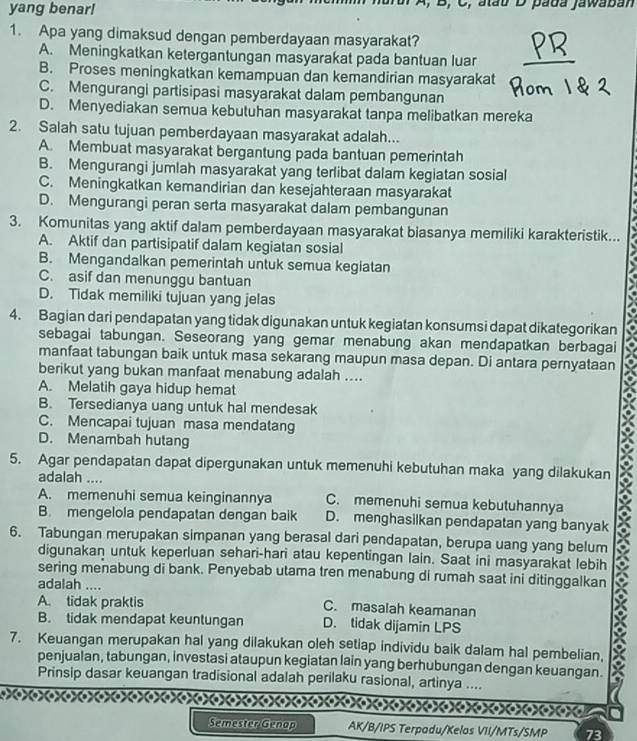 A, B, C, atau D pada jawaban
yang benar!
1. Apa yang dimaksud dengan pemberdayaan masyarakat?
A. Meningkatkan ketergantungan masyarakat pada bantuan luar
B. Proses meningkatkan kemampuan dan kemandirian masyarakat
C. Mengurangi partisipasi masyarakat dalam pembangunan
D. Menyediakan semua kebutuhan masyarakat tanpa melibatkan mereka
PR
Rom 1 & 2
2. Salah satu tujuan pemberdayaan masyarakat adalah...
A. Membuat masyarakat bergantung pada bantuan pemerintah
B. Mengurangi jumlah masyarakat yang terlibat dalam kegiatan sosial
C. Meningkatkan kemandirian dan kesejahteraan masyarakat
D. Mengurangi peran serta masyarakat dalam pembangunan
3. Komunitas yang aktif dalam pemberdayaan masyarakat biasanya memiliki karakteristik...
A. Aktif dan partisipatif dalam kegiatan sosial
B. Mengandalkan pemerintah untuk semua kegiatan
C. asif dan menunggu bantuan
D. Tidak memiliki tujuan yang jelas
4. Bagian dari pendapatan yang tidak digunakan untuk kegiatan konsumsi dapat dikategorikan
sebagai tabungan. Seseorang yang gemar menabung akan mendapatkan berbagai
manfaat tabungan baik untuk masa sekarang maupun masa depan. Di antara pernyataan
berikut yang bukan manfaat menabung adalah ....
A. Melatih gaya hidup hemat
B. Tersedianya uang untuk hal mendesak
C. Mencapai tujuan masa mendatang
D. Menambah hutang
5. Agar pendapatan dapat dipergunakan untuk memenuhi kebutuhan maka yang dilakukan
adalah ....
A. memenuhi semua keinginannya C. memenuhi semua kebutuhannya
B. mengelola pendapatan dengan baik D. menghasilkan pendapatan yang banyak
6. Tabungan merupakan simpanan yang berasal dari pendapatan, berupa uang yang belum
digunakan untuk keperluan sehari-hari atau kepentingan lain. Saat ini masyarakat lebih
sering menabung di bank. Penyebab utama tren menabung di rumah saat ini ditinggalkan
adalah ....
A. tidak praktis C. masalah keamanan
B. tidak mendapat keuntungan D. tidak dijamin LPS
7. Keuangan merupakan hal yang dilakukan oleh setiap individu baik dalam hal pembelian,
penjualan, tabungan, investasi ataupun kegiatan lain yang berhubungan dengan keuangan.
Prinsip dasar keuangan tradisional adalah perilaku rasional, artinya ....
Semester Genap AK/B/IPS Terpadu/Kelas VII/MTs/SMP 73